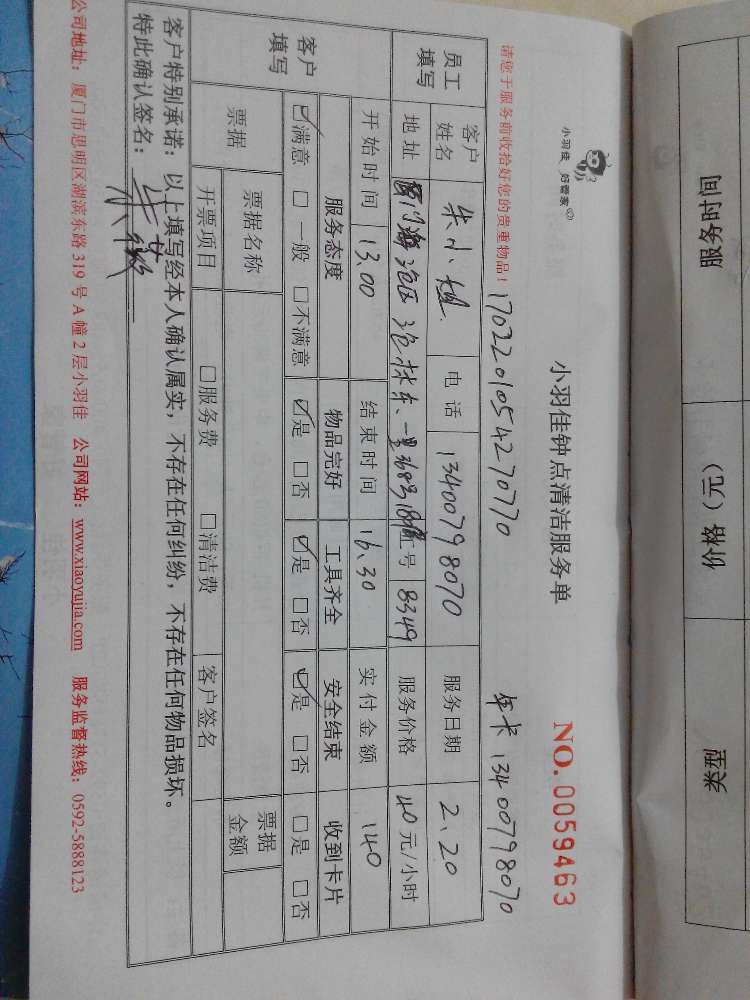 小羽佳 好管家
小羽佳钟点清洁服务单
NO.0059463
请您于服务前收拾好您的贵重物品！
1702201054270770
年卡 13400798070
员工填写
客户姓名 朱小姐 电话 13400798070 服务日期 2、20
地址 厦门海沧区 工号 8349 服务价格 40元/小时
开始时间 13.00 结束时间 16.30 实付金额 140
客户填写
服务态度 物品完好 工具齐全 安全结束 收到卡片
☑满意 □一般 □不满意 ☑是 □否 ☑是 □否 ☑是 □否 □是 □否
票据 票据名称 票据金额
开票项目 □服务费 □清洁费 客户签名
客户特别承诺：以上填写经本人确认属实，不存在任何纠纷，不存在任何物品损坏。
特此确认签名：
公司地址：厦门市思明区湖滨东路 319 号 A 幢 2 层小羽佳 公司网站：www.xiaoyujia.com 服务监督热线：0592-5888123
服务时间
价格（元）
类型